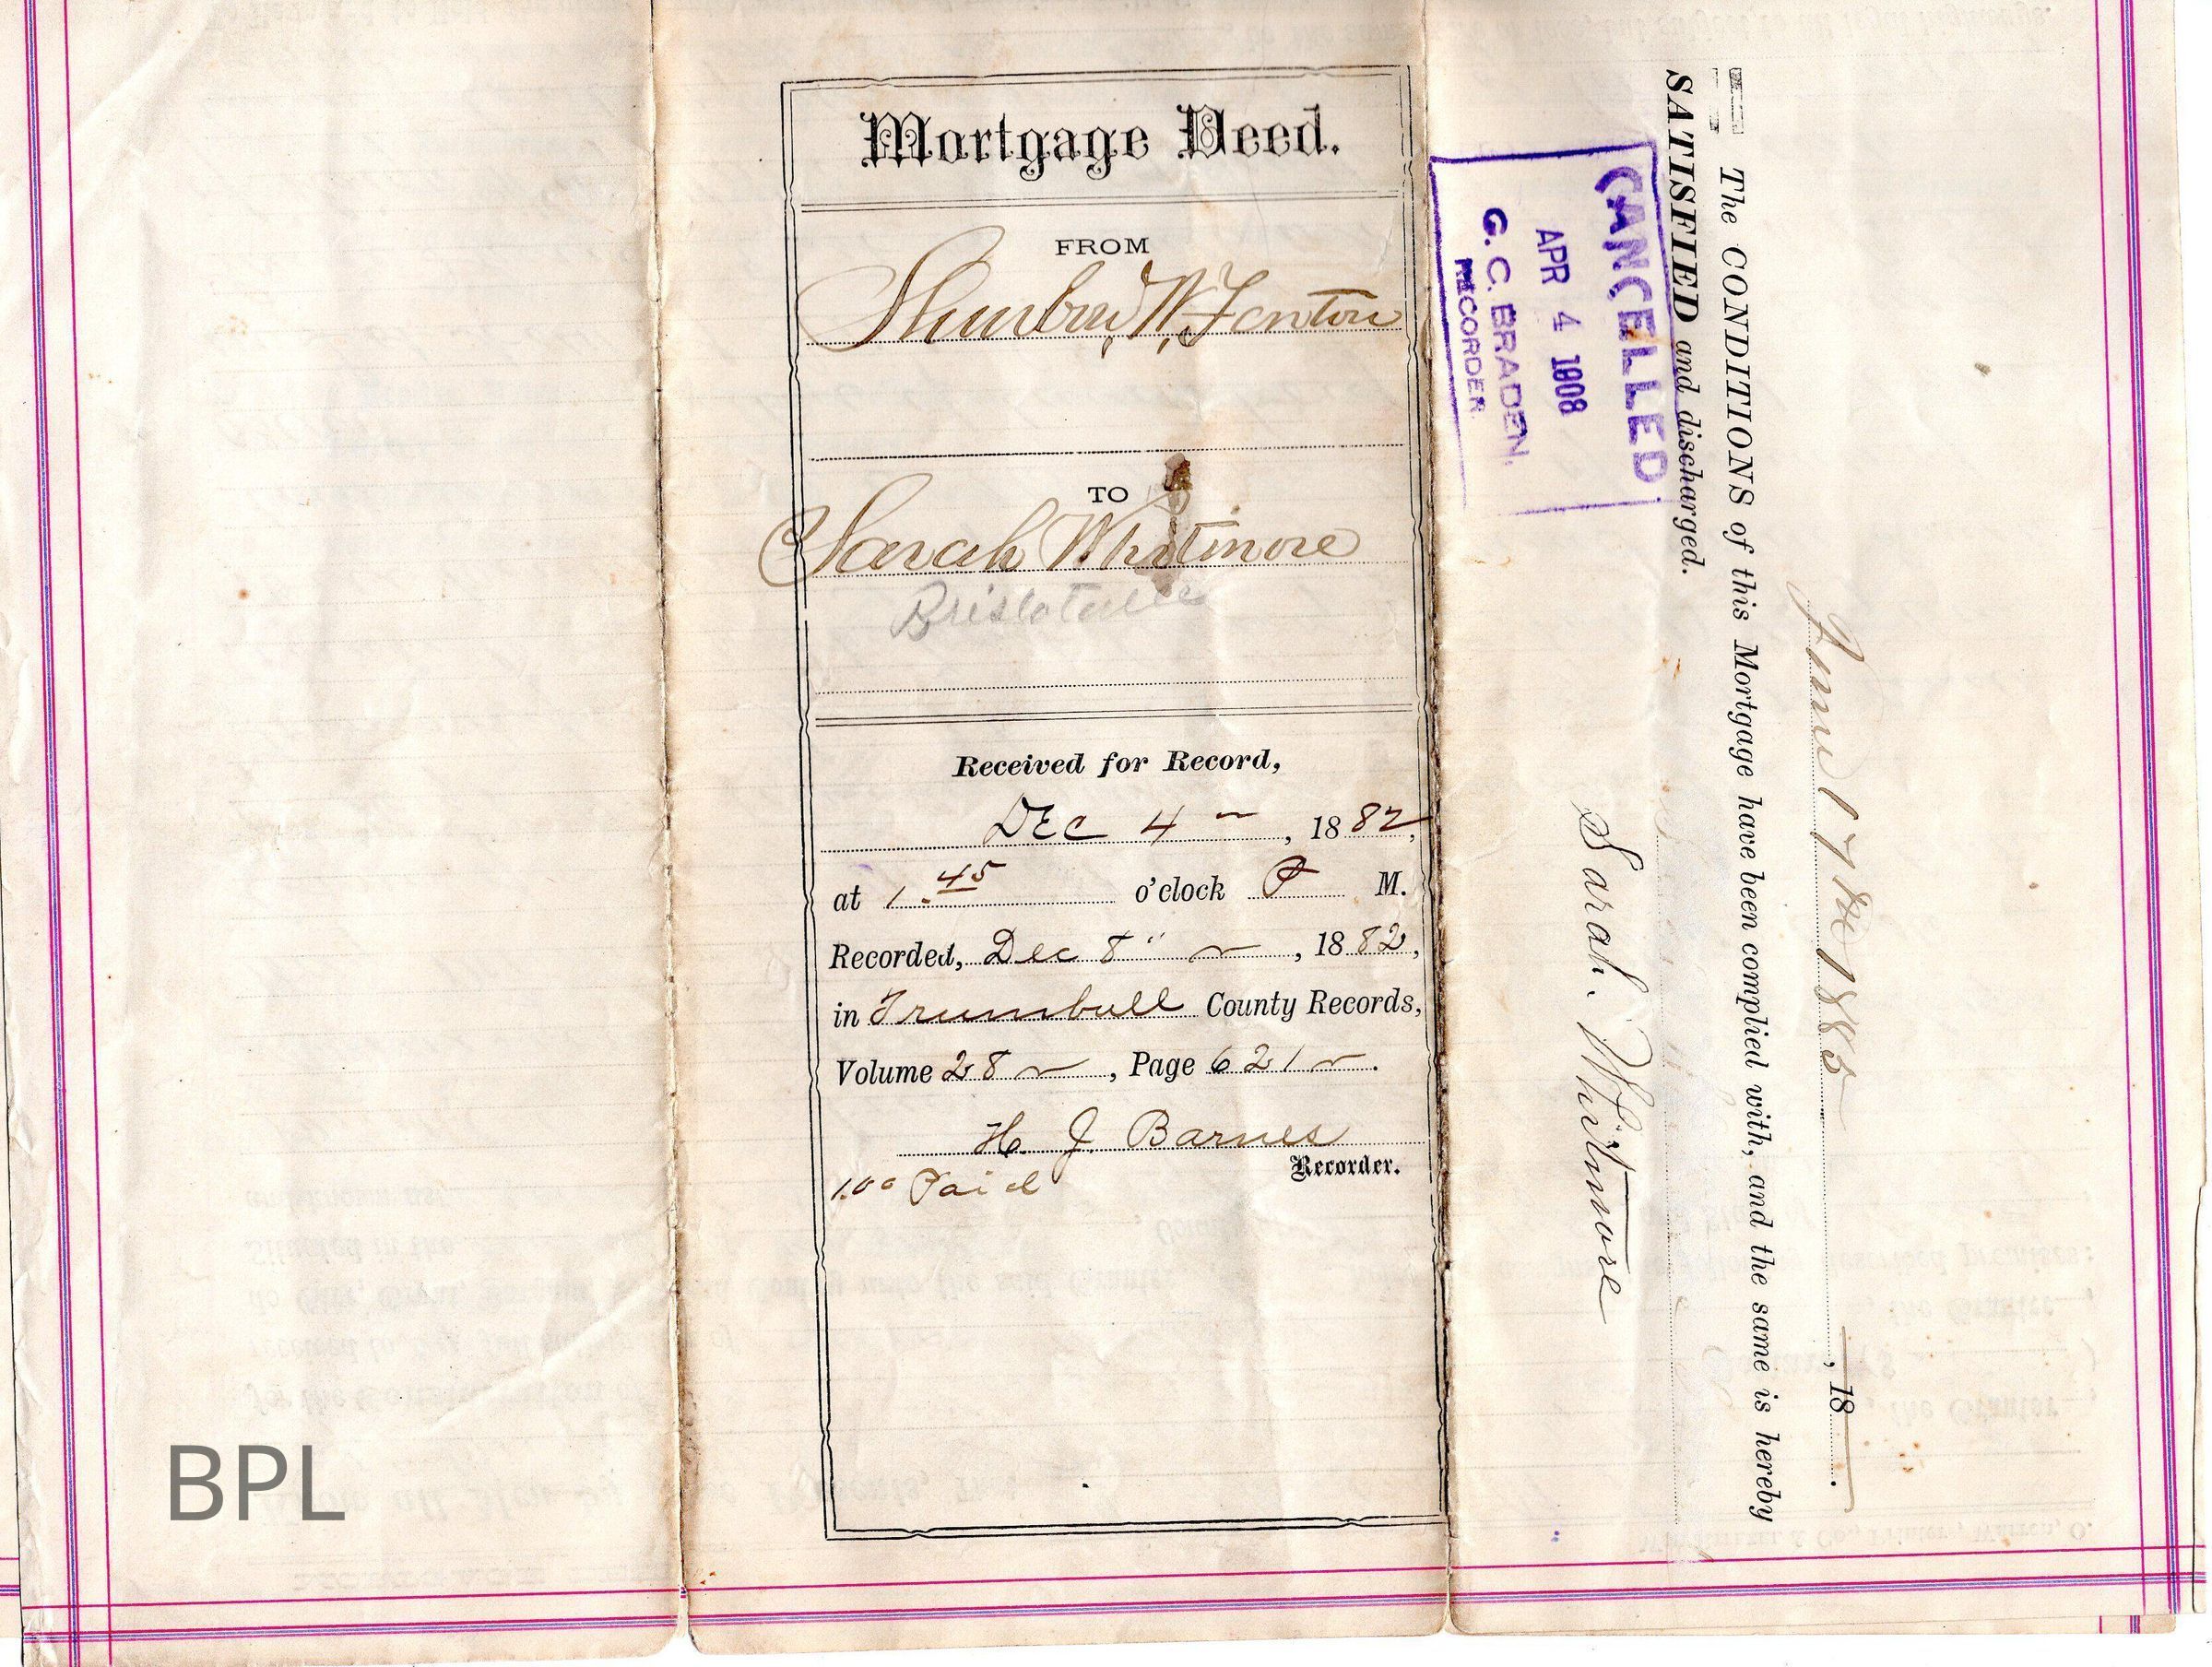 Mortgage Deed.
FROM
W. Fenton
TO
Sarah Whitmore
Received for Record,
Dec 4 , 1882,
at 1.45 o'clock P M.
Recorded, Dec 8" , 1882,
in Trumbull County Records,
Volume 28 , Page 621 .
H. J. Barnes
Recorder.
1.00 Paid
CANCELLED
APR 4 1908
G. C. BRADEN,
RECORDER
The CONDITIONS of this Mortgage have been complied with, and the same is hereby
SATISFIED and discharged.
June 17th 1885 , 18 .
Sarah Whitmore
BPL